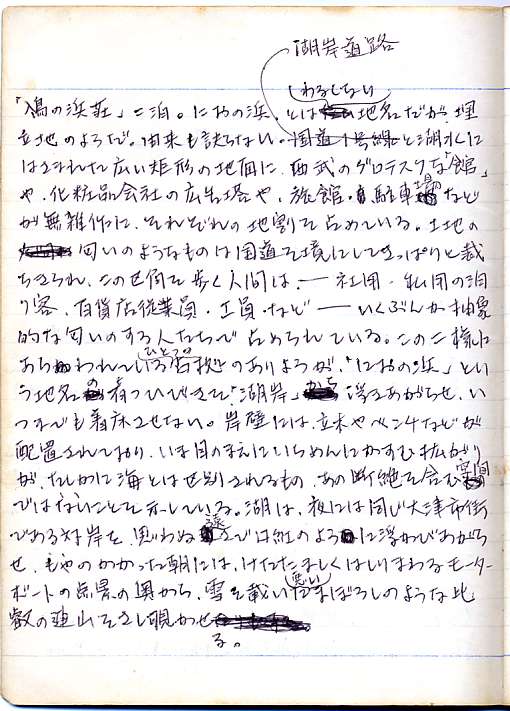 湖岸道路
しわるしない
「鳰の浜荘」に泊。におの浜、とは地名だが、埋
立地のようだ。由来も訣らない。国道1号線と湖水に
はさまれた広い矩形の地面に、西武のグロテスクな「館」
や、化粧品会社の広告塔や、旅館、駐車場など
が無雑作に、それぞれの地割を占めている。土地の
匂いのようなものは国道を境にしてさっぱりと裁
ちきられ、この区劃を歩く人間は、── 社用・私用の泊
り客、百貨店従業員・工員・など ── いくぶんか抽象
的な匂いのする人たちで占められている。この二様に
あらわれているひとつの断絶のありようが、「におの浜」とい
う地名のうついできを「湖岸」から浮きあがらせ、い
つまでも着床させない。岸壁には、立木やベンチなどが
配置されており、いま目のまえにいちめんにかすむ拡がり
が、たしかに海とは区別されるもの、あの断絶を含む空間
ではないことを示している。湖は、夜には同じ大津市街
である対岸を、思わぬ遠くでは紅のように浮かびあがら
せ、もやのかかった朝には、けたたましくはしりまわるモーター
ボートの点景の奥から、雪を載いた悪いまぼろしのような比
叡の連山をさし覗かせ
る。